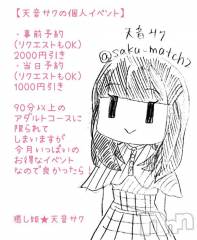 【天音サクの個人イベント】
・事前予約
(リクエストもOK)
2000円引き
・当日予約
(リクエストもOK)
1000円引き
90分以上の
アダルトコースに
限られて
しまいますが
今月いっぱいの
お得なイベント
なので良かったら!
癒し姫★天音サク
天音サク
@saku_match2